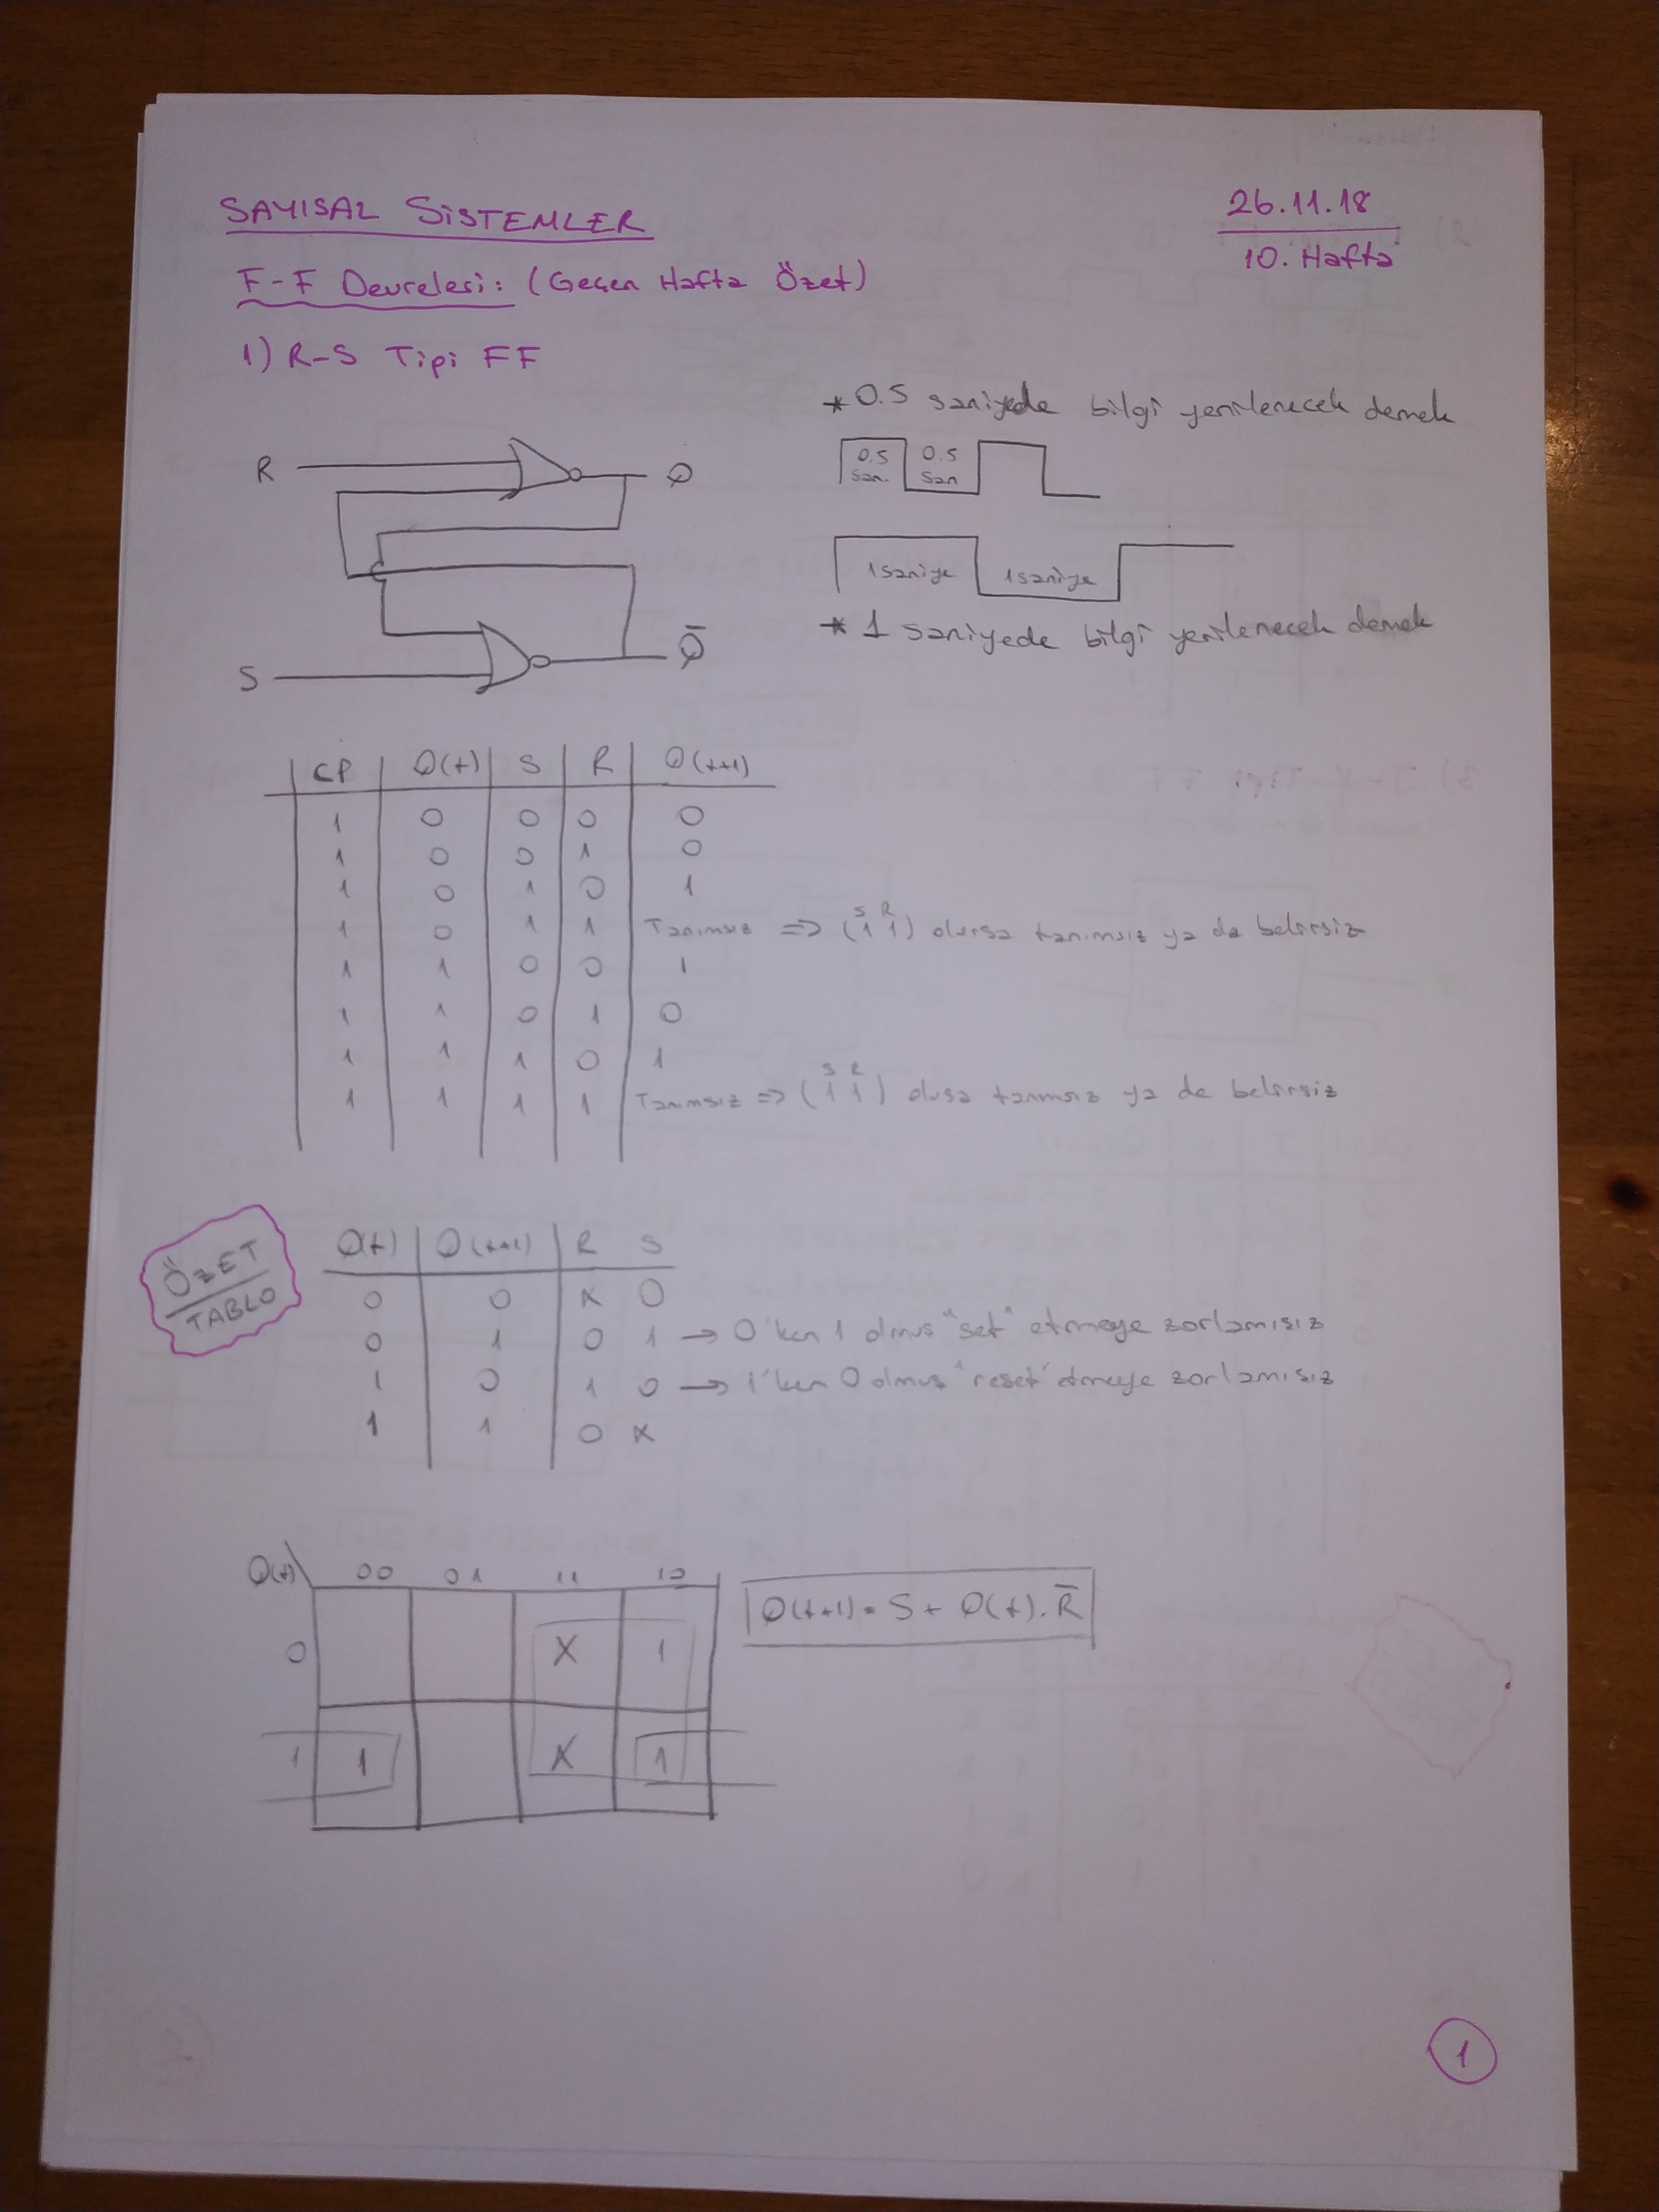 SAYISAL SİSTEMLER
26.11.18
10. Hafta
F-F Devreleri: (Geçen Hafta Özet)
1) R-S Tipi FF
* 0.5 saniyede bilgi yenilenecek demek
R
Q
0.5 san. 0.5 san
1 saniye 1 saniye
S
Q̄
* 1 saniyede bilgi yenilenecek demek
CP Q(t) S R Q(t+1)
1 0 0 0 0
1 0 0 1 0
1 0 1 0 1
1 0 1 1 Tanımsız => (1 1) olursa tanımsız ya da belirsiz
S R
1 1 0 0 1
1 1 0 1 0
1 1 1 0 1
1 1 1 1 Tanımsız => (1 1) olusa tanımsız ya de belirsiz
S R
ÖZET
TABLO
Q(t) Q(t+1) R S
0 0 X 0
0 1 0 1 → 0'ken 1 olmus "set" etmeye zorlamısız
1 0 1 0 → 1'ken 0 olmus "reset" etmeye zorlamısız
1 1 0 X
Q(t) 00 01 11 10
0 X 1
1 1 X 1
Q(t+1) = S + Q(t).R̄
1